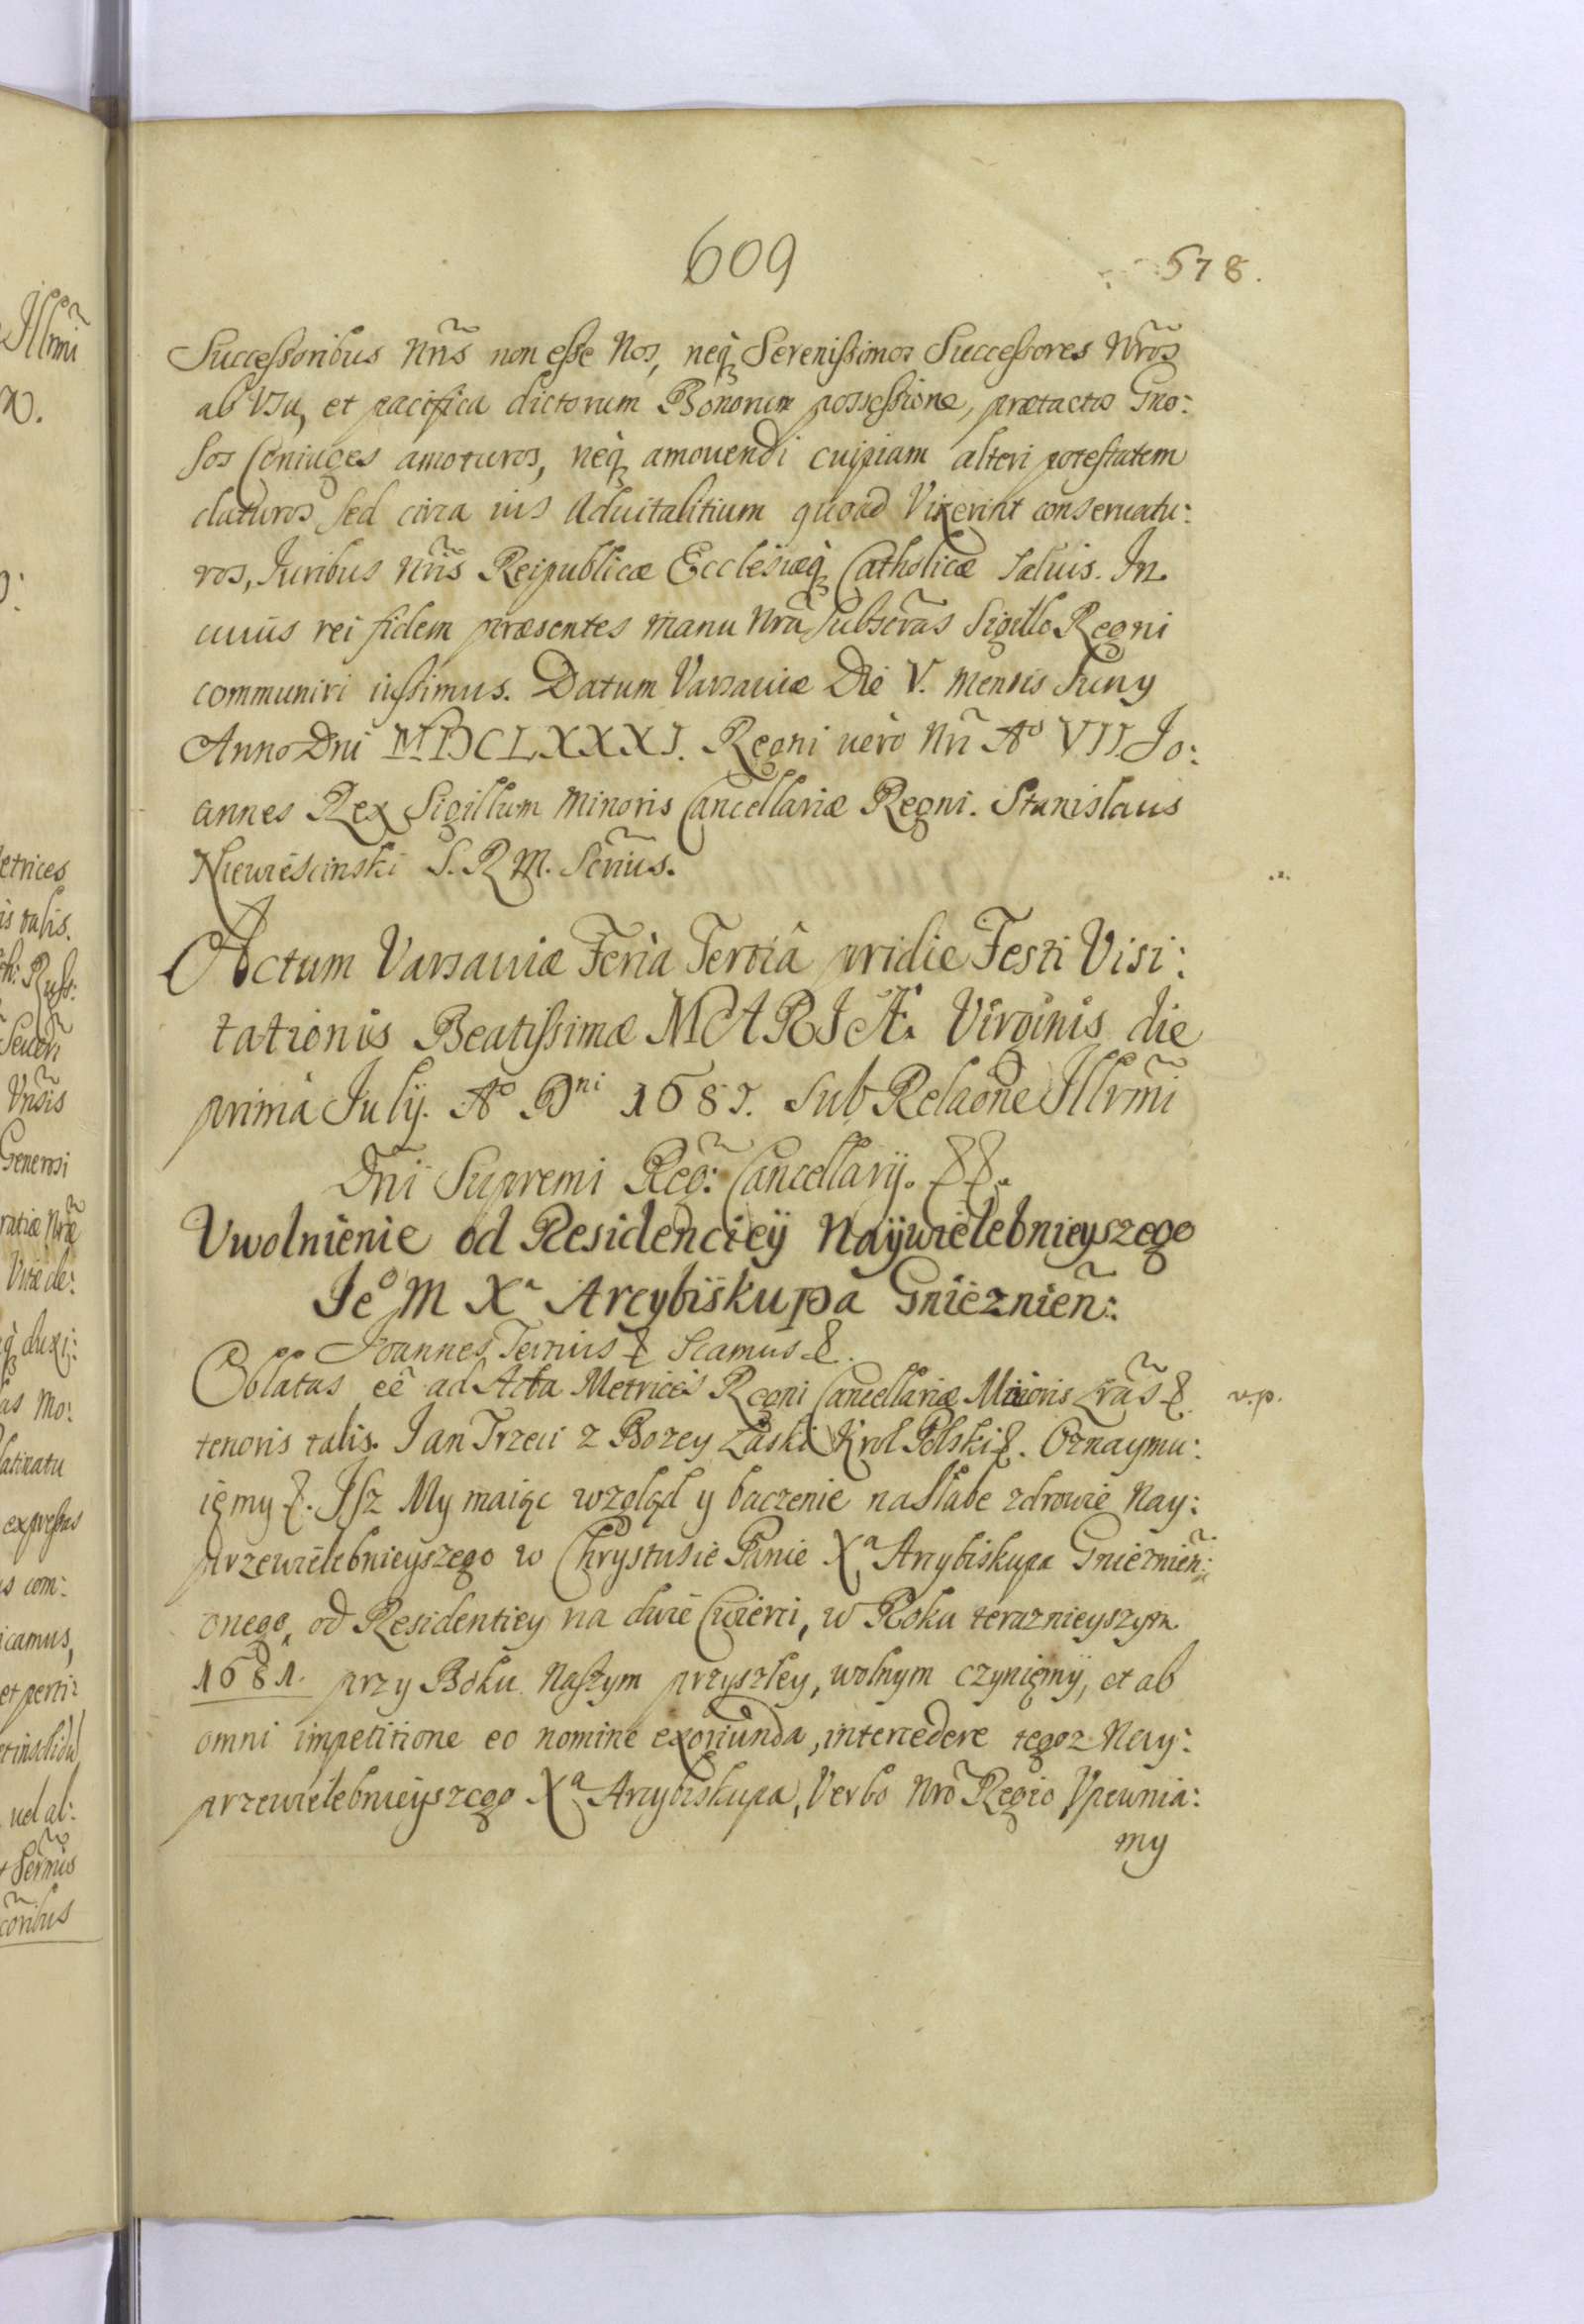 609
578.
Successoribus Nr̃is non esse Nos, neq; Serenissimos Successores Nr̃os
ab Usu, et pacifica dictorum Bonorum possessione, prætactos Gno:
sos Coniuges amoturos, neq; amovendi cuipiam alteri potestatem
daturos sed circa ius Advitalitium quoad Vixerint conservatu:
ros, Juribus Nr̃is Reipublicæ Ecclesiæq; Catholicæ Salvis. In
cuius rei fidem præsentes manu Nr̃a Subscr̃as Sigillo Regni
communiri iussimus. Datum Varsaviæ Die V. Mensis Juny
Anno Dni MDCLXXXI. Regni vero Nr̃i Aº VII. Jo:
annes Rex Sigillum Minoris Cancellariæ Regni. Stanislaus
Niewiescinski S. R M. Scr̃ius.
Actum Varsaviæ Feria Tertiâ pridie Festi Visi:
tationis Beatissimæ MARIÆ Virginis die
prima July. Aº Dni 1681. Sub Relaõne Illr̃mi
Dñi Supremi Reg: Cancellarij. &&.
Uwolnienie od Residencieÿ Nayẅielebnieyszego
Jeº M Xa Arcybiskupa Gnieznień:
Joannes Tertius & Scamus &.
Oblatas eẽ ad Acta Metrices Regni Cancellariæ Minoris Lr̃as &. v.p.
tenoris talis. Jan Trzeci z Bozey Łaski Krol Polski &. Oznaymu:
ięmy &. Isz My maiąc wzgląd y baczenie na słabe zdrowie Nay:
przewielebnieyszego w Chrystusie Panie Xa Arcybiskupa Gnieznień:
onego, od Residentiey na dwie Cwierci, w Roku teraznieyszym
1681. przy Boku Naszym przyszłey, wolnym czynięmÿ, et ab
omni impetitione eo nomine exoriunda, intercedere tegoz Nay:
przewielebnieyszego Xa Arcybiskupa, Verbo Nr̃o Regio Upewnia:
my